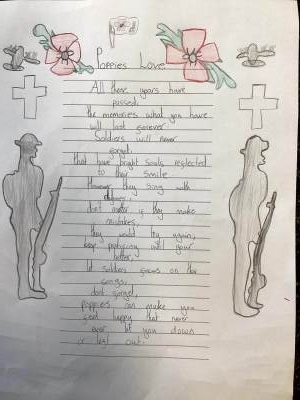 Poppies Love
All these years have
passed.
the memories what you have
will last forever
Soldiers will never
forget.
that have bright souls reflected
to they smile
However they sing with
don't matter if they make
mistakes.
they would try again,
keep practicing until your
better.
let soldiers focus on the
songs,
don't forget.
poppies can make you
feel happy that never
ever let you down
or left out.